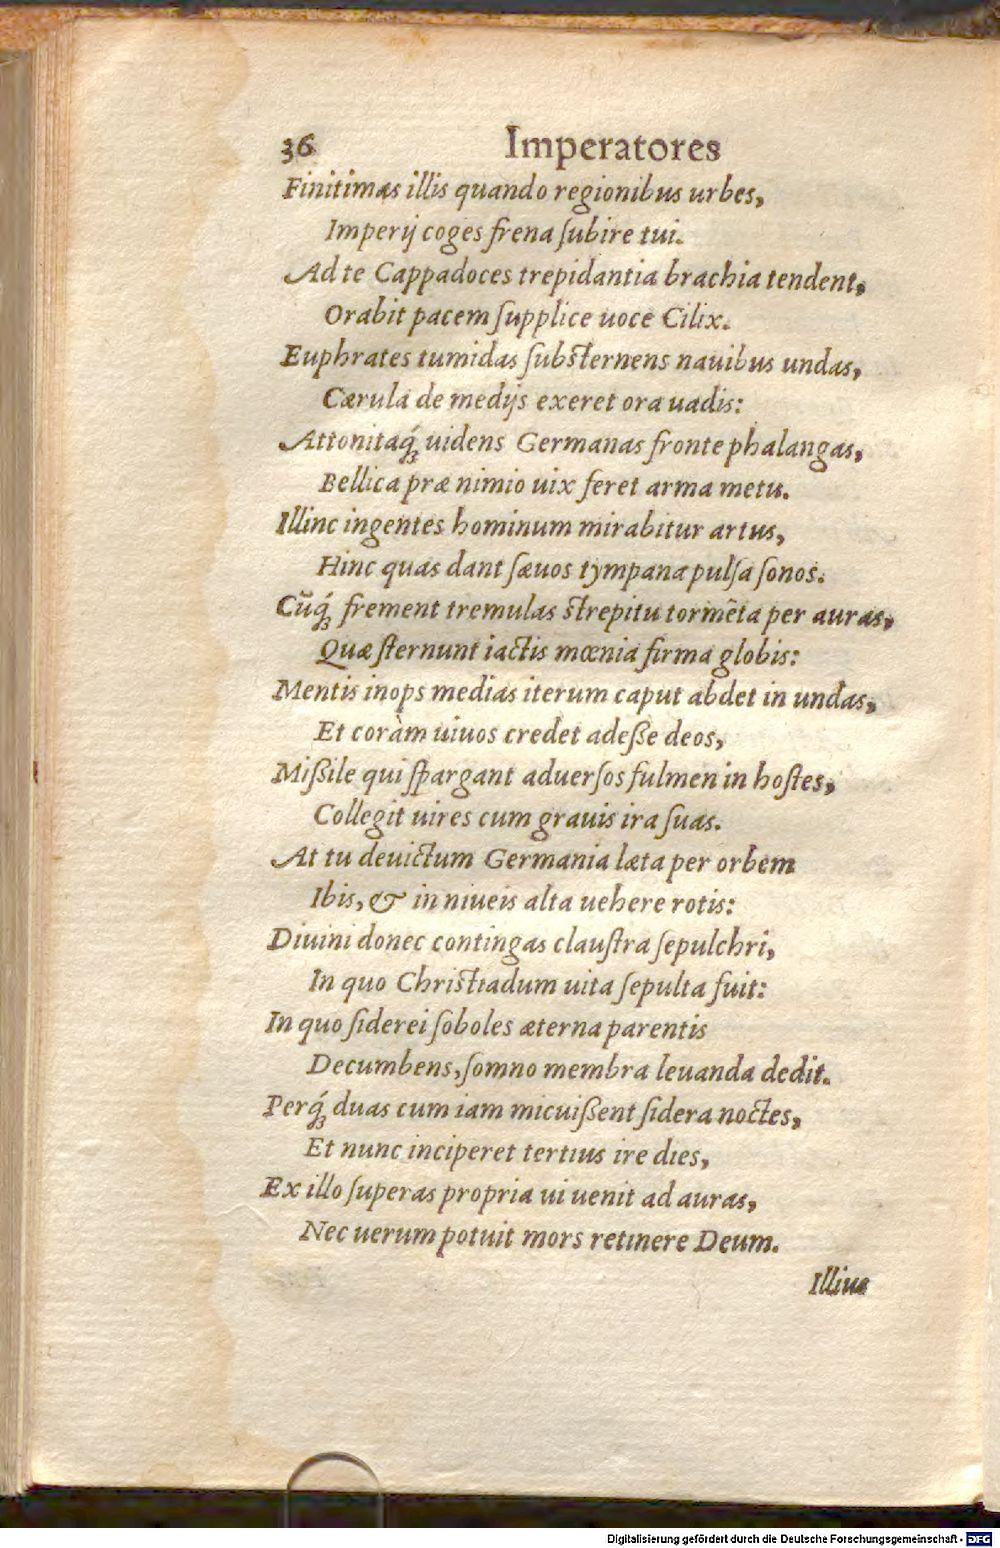 36 Imperatores
Finitimas illis quando regionibus urbes,
Imperij coges frena ſubire tui.
Ad te Cappadoces trepidantia brachia tendent,
Orabit pacem ſupplice uoce Cilix.
Euphrates tumidas ſubſternens nauibus undas,
Cærula de medijs exeret ora uadis:
Attonitaq́ꝫ uidens Germanas fronte phalangas,
Bellica præ nimio uix feret arma metu.
Illinc ingentes hominum mirabitur artus,
Hinc quas dant ſæuos tympana pulſa ſonos.
Cũq́ꝫ frement tremulas ſtrepitu tormẽta per auras,
Quæ ſternunt iactis mœnia firma globis:
Mentis inops medias iterum caput abdet in undas,
Et coràm uiuos credet adeſſe deos,
Miſſile qui ſpargant aduerſos fulmen in hoſtes,
Collegit uires cum grauis ira ſuas.
At tu deuictum Germania læta per orbem
Ibis, & in niueis alta uehere rotis:
Diuini donec contingas clauſtra ſepulchri,
In quo Chriſtiadum uita ſepulta fuit:
In quo ſiderei ſoboles æterna parentis
Decumbens, ſomno membra leuanda dedit.
Perq́ꝫ duas cum iam micuiſſent ſidera noctes,
Et nunc inciperet tertius ire dies,
Ex illo ſuperas propria ui uenit ad auras,
Nec uerum potuit mors retinere Deum.
Illius
Digitalisierung gefördert durch die Deutsche Forschungsgemeinschaft - DFG